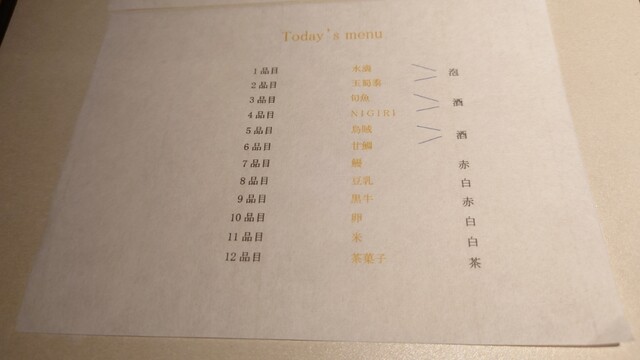 Today's menu
1品目 水歯 泡
2品目 玉蜀黍
3品目 旬魚 酒
4品目 NIGIRI
5品目 烏賊 酒
6品目 甘鯛
7品目 鰻 赤
8品目 豆乳 白
9品目 黒牛 赤
10品目 卵 白
11品目 米 白
12品目 茶菓子 茶